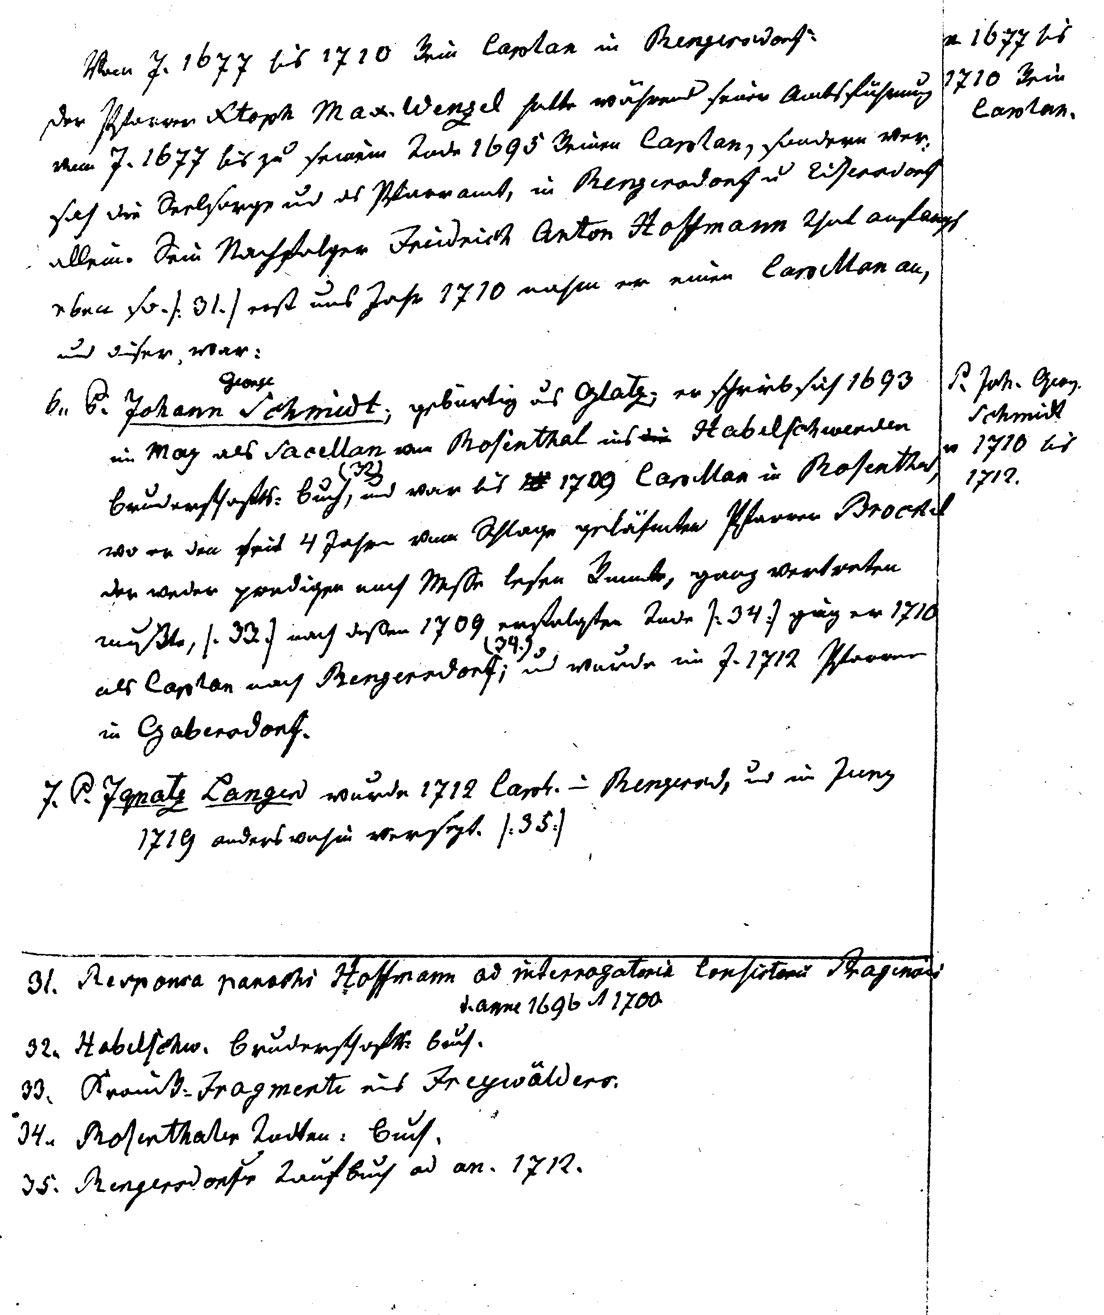 Vom J. 1677 bis 1710 kein Caplan in Rengersdorf:
Der Pfarrer Xtoph Max. Wenzel hatte während seiner Amtsführung
vom J. 1677 bis zu seinem Tode 1695 keinen Caplan, sondern ver-
sah die Seelsorge und das Pfarramt, in Rengersdorf u Eisersdorf
allein. Sein Nachfolger Friedrich Anton Hoffmann that anfangs
eben so /: 31. / erst ums Jahr 1710 nahm er einen Capellan an,
und dieser war:
George
6. P. Johann Schmidt; gebürtig aus Glatz; er schrieb sich 1693
im May als Sacellan von Rosenthal ins Habelschwerden
Bruderschafts: Buch, (32) und war bis 1709 Capellan in Rosenthal,
wo er den seit 4 Jahren vom Schlage gelähmten Pfarrer Brockel
der weder predigen noch Messe lesen konnte, ganz vertreten
mußte, /: 33. / nach dessen 1709 erfolgten Tode /: 34 :/ ging er 1710
als Caplan nach Rengersdorf; (34.) und wurde im J. 1712 Pfarrer
in Gabersdorf.
7. P. Ignatz Langer wurde 1712 Capl. in Rengersd, und im Juny
1719 anderswohin versetzt. /: 35 :/
v 1677 bis
1710 kein
Caplan.
P. Joh. Georg.
Schmidt
v 1710 bis
1712.
31. Responsa parochi Hoffmann ad interrogatoria Consistorii Pragensis
d. anno 1696 1700
32. Habelschw. Bruderschafts: Buch.
33. Fragmente aus Freywälders.
34. Rosenthaler Todten: Buch.
35. Rengersdorfer Taufbuch ad an. 1712.